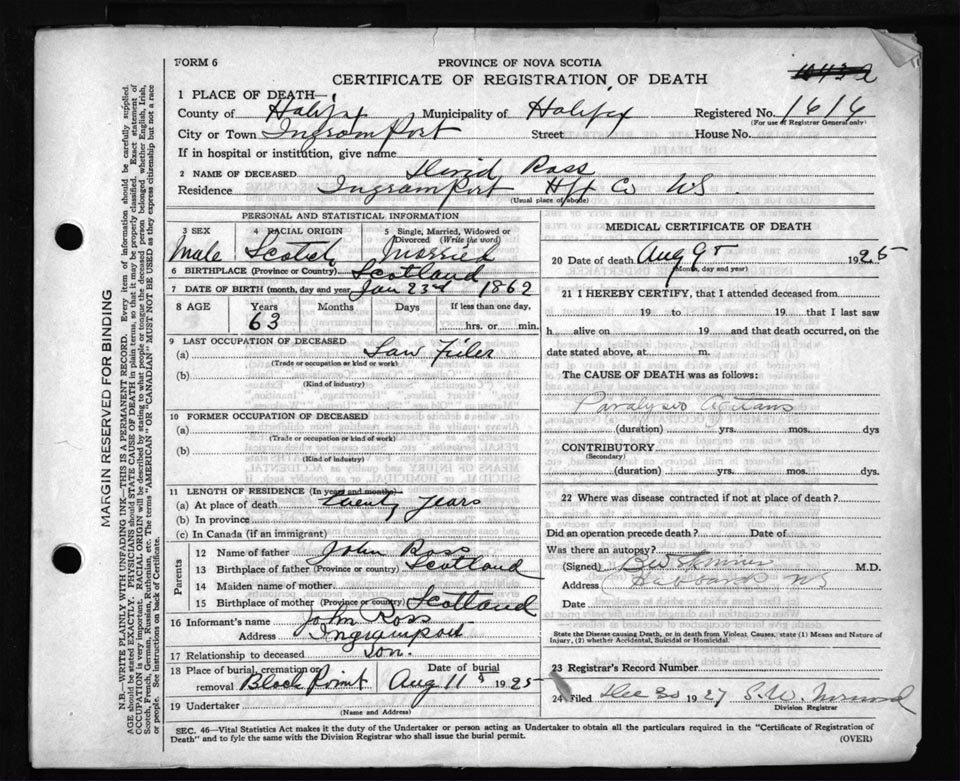 FORM 6
PROVINCE OF NOVA SCOTIA
CERTIFICATE OF REGISTRATION OF DEATH
1 PLACE OF DEATH—
County of Halifax Municipality of Halifax Registered No. 1616
(For use of Registrar General only)
City or Town Ingramport Street House No.
If in hospital or institution, give name
2 NAME OF DECEASED David Ross
Residence Ingramport Hfx Co NS
(Usual place of abode)
PERSONAL AND STATISTICAL INFORMATION
3 SEX
Male
4 RACIAL ORIGIN
Scotch
5 Single, Married, Widowed or Divorced (Write the word)
Married
6 BIRTHPLACE (Province or Country) Scotland
7 DATE OF BIRTH (month, day and year) Jan 23rd 1862
8 AGE Years Months Days If less than one day,
63 hrs. or min.
9 LAST OCCUPATION OF DECEASED
(a) Saw Filer
(Trade or occupation or kind of work)
(b)
(Kind of industry)
10 FORMER OCCUPATION OF DECEASED
(a)
(Trade or occupation or kind of work)
(b)
(Kind of industry)
11 LENGTH OF RESIDENCE (In years and months)
(a) At place of death twenty years
(b) In province
(c) In Canada (if an immigrant)
Parents
12 Name of father John Ross
13 Birthplace of father (Province or country) Scotland
14 Maiden name of mother
15 Birthplace of mother (Province or country) Scotland
16 Informant's name John Ross
Address Ingramport
17 Relationship to deceased Son.
18 Place of burial, cremation or removal Black Point
Date of burial Aug 11 1925
19 Undertaker
(Name and Address)
MEDICAL CERTIFICATE OF DEATH
20 Date of death Aug 9 1925
(Month, day and year)
21 I HEREBY CERTIFY, that I attended deceased from
19 to 19 that I last saw
h alive on 19 and that death occurred, on the
date stated above, at m.
The CAUSE OF DEATH was as follows:
Paralysis Agitans
(duration) yrs. mos. dys
CONTRIBUTORY
(Secondary)
(duration) yrs. mos. dys.
22 Where was disease contracted if not at place of death?
Did an operation precede death? Date of
Was there an autopsy?
(Signed) M.D.
Address Hubbards NS
Date
State the Disease causing Death, or in death from Violent Causes, state (1) Means and Nature of
Injury, (2) whether Accidental, Suicidal or Homicidal.
23 Registrar's Record Number
24 Filed Dec 30 1927
Division Registrar
SEC. 46—Vital Statistics Act makes it the duty of the Undertaker or person acting as Undertaker to obtain all the particulars required in the "Certificate of Registration of
Death" and to fyle the same with the Division Registrar who shall issue the burial permit.
(OVER)
MARGIN RESERVED FOR BINDING
N.B.—WRITE PLAINLY WITH UNFADING INK—THIS IS A PERMANENT RECORD. Every item of information should be carefully supplied.
AGE should be stated EXACTLY. PHYSICIANS should STATE CAUSE OF DEATH in plain terms, so that it may be properly classified. Exact statement of
OCCUPATION is very important. RACIAL ORIGIN will be described by stating to what people or tongue the deceased person belonged whether English, Irish,
Scotch, French, German, Russian, Ruthenian, etc. The terms "AMERICAN" or "CANADIAN" MUST NOT BE USED as they express citizenship but not a race
or people. See instructions on back of Certificate.